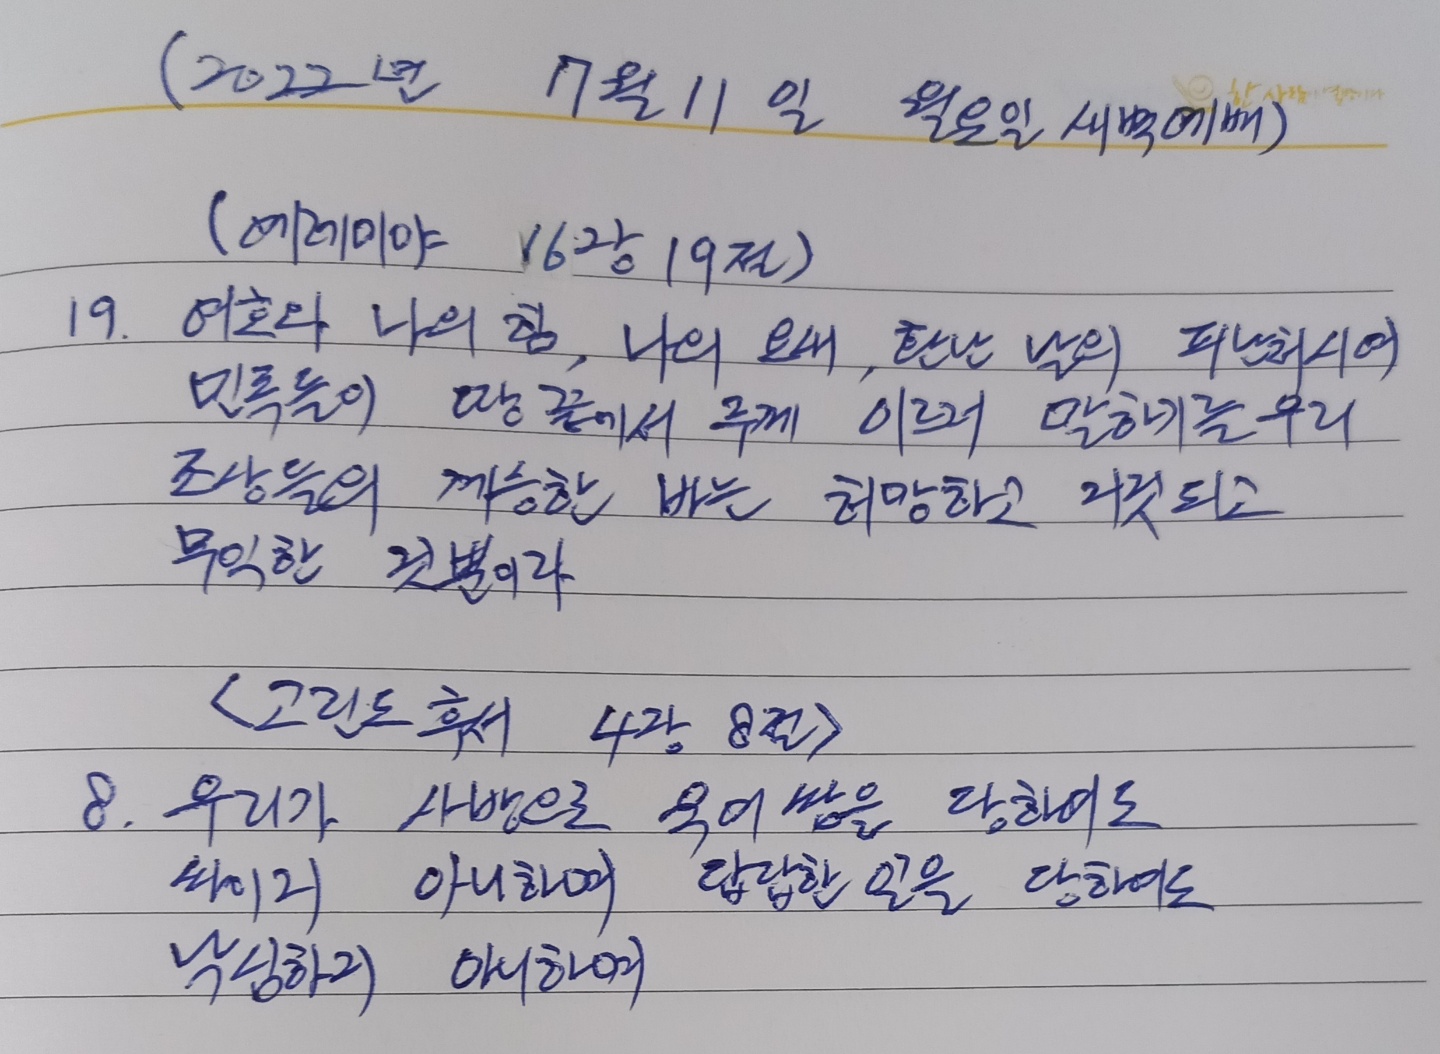 (2022년 7월 11일 월요일 새벽예배)
한 사람이
(예레미야 16장 19절)
19. 여호와 나의 힘, 나의 요새, 환난 날의 피난처시여
민족들이 땅 끝에서 주께 이르러 말하기를 우리
조상들의 계승한 바는 허망하고 거짓되고
무익한 것뿐이라
<고린도후서 4장 8절>
8. 우리가 사방으로 욱여쌈을 당하여도
싸이지 아니하며 답답한 일을 당하여도
낙심하지 아니하며